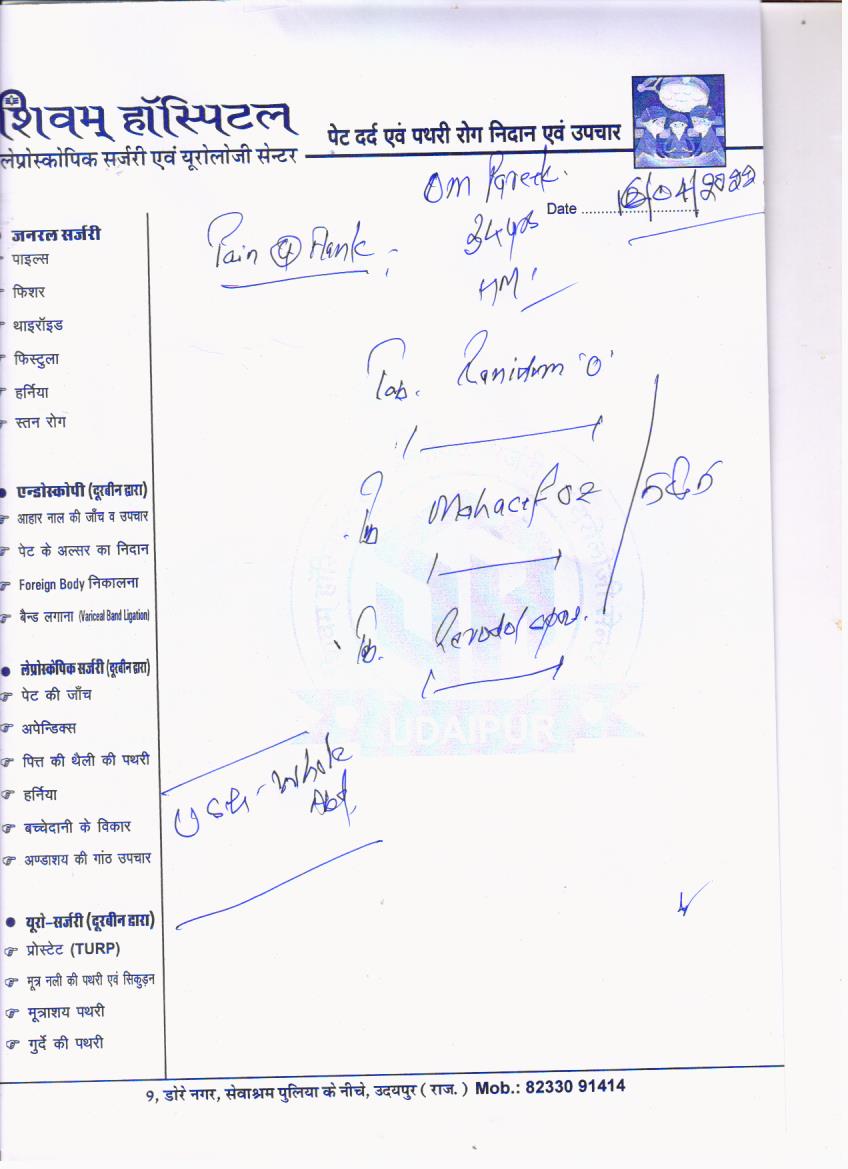 शिवम् हॉस्पिटल
लेप्रोस्कोपिक सर्जरी एवं यूरोलोजी सेन्टर
पेट दर्द एवं पथरी रोग निदान एवं उपचार
Om Pareek.
Date ........................ /04/2022
34 yrs
Pain @ Flank
जनरल सर्जरी
पाइल्स
फिशर
थाइरॉइड
फिस्टुला
हर्निया
स्तन रोग
Tab. Ranidom 'O'
Mahacef OZ
एन्डोस्कोपी (दूरबीन द्वारा)
आहार नाल की जाँच व उपचार
पेट के अल्सर का निदान
Foreign Body निकालना
बैन्ड लगाना (Variceal Band Ligation)
लेप्रोस्कोपिक सर्जरी (दूरबीन द्वारा)
पेट की जाँच
अपेन्डिक्स
पित्त की थैली की पथरी
हर्निया
बच्चेदानी के विकार
अण्डाशय की गांठ उपचार
UDAIPUR
Whole
Abd.
यूरो-सर्जरी (दूरबीन द्वारा)
प्रोस्टेट (TURP)
मूत्र नली की पथरी एवं सिकुड़न
मूत्राशय पथरी
गुर्दे की पथरी
9, डोरे नगर, सेवाश्रम पुलिया के नीचे, उदयपुर ( राज. ) Mob.: 82330 91414